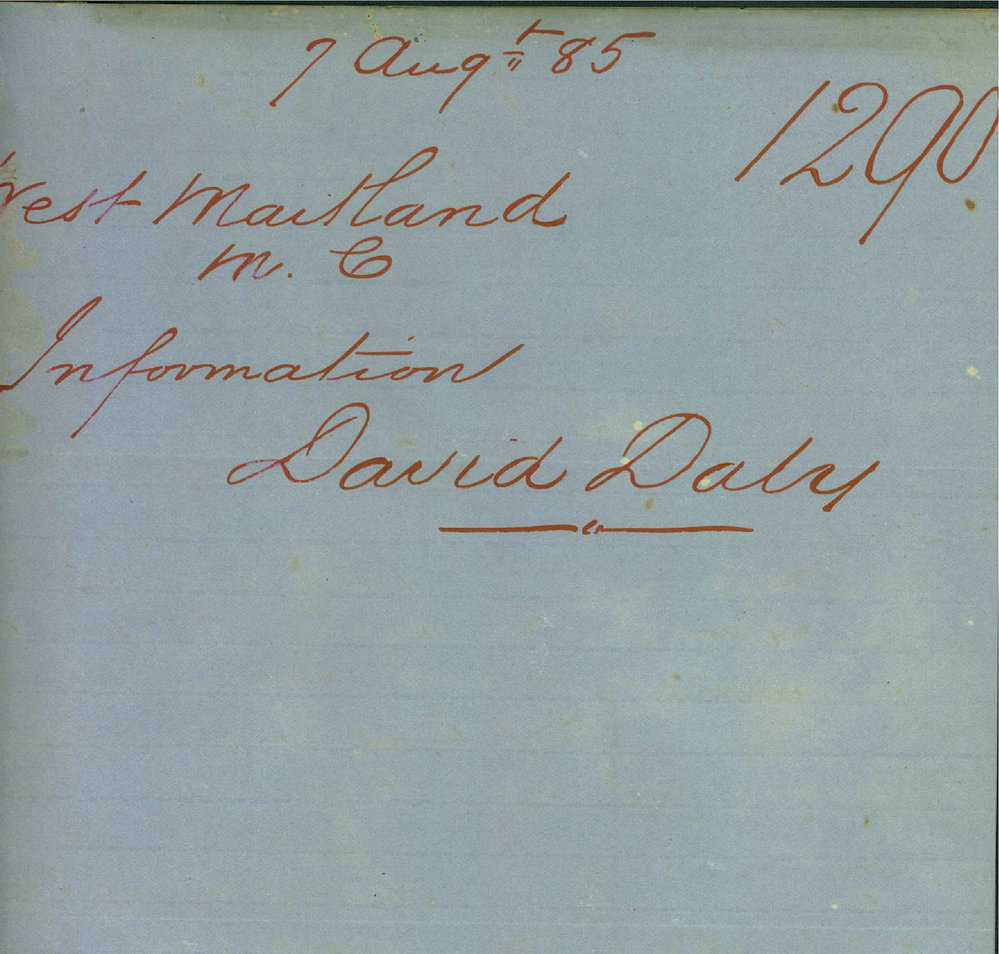 7 Augt 85
1290
West Maitland
M. C
Information
David Daly